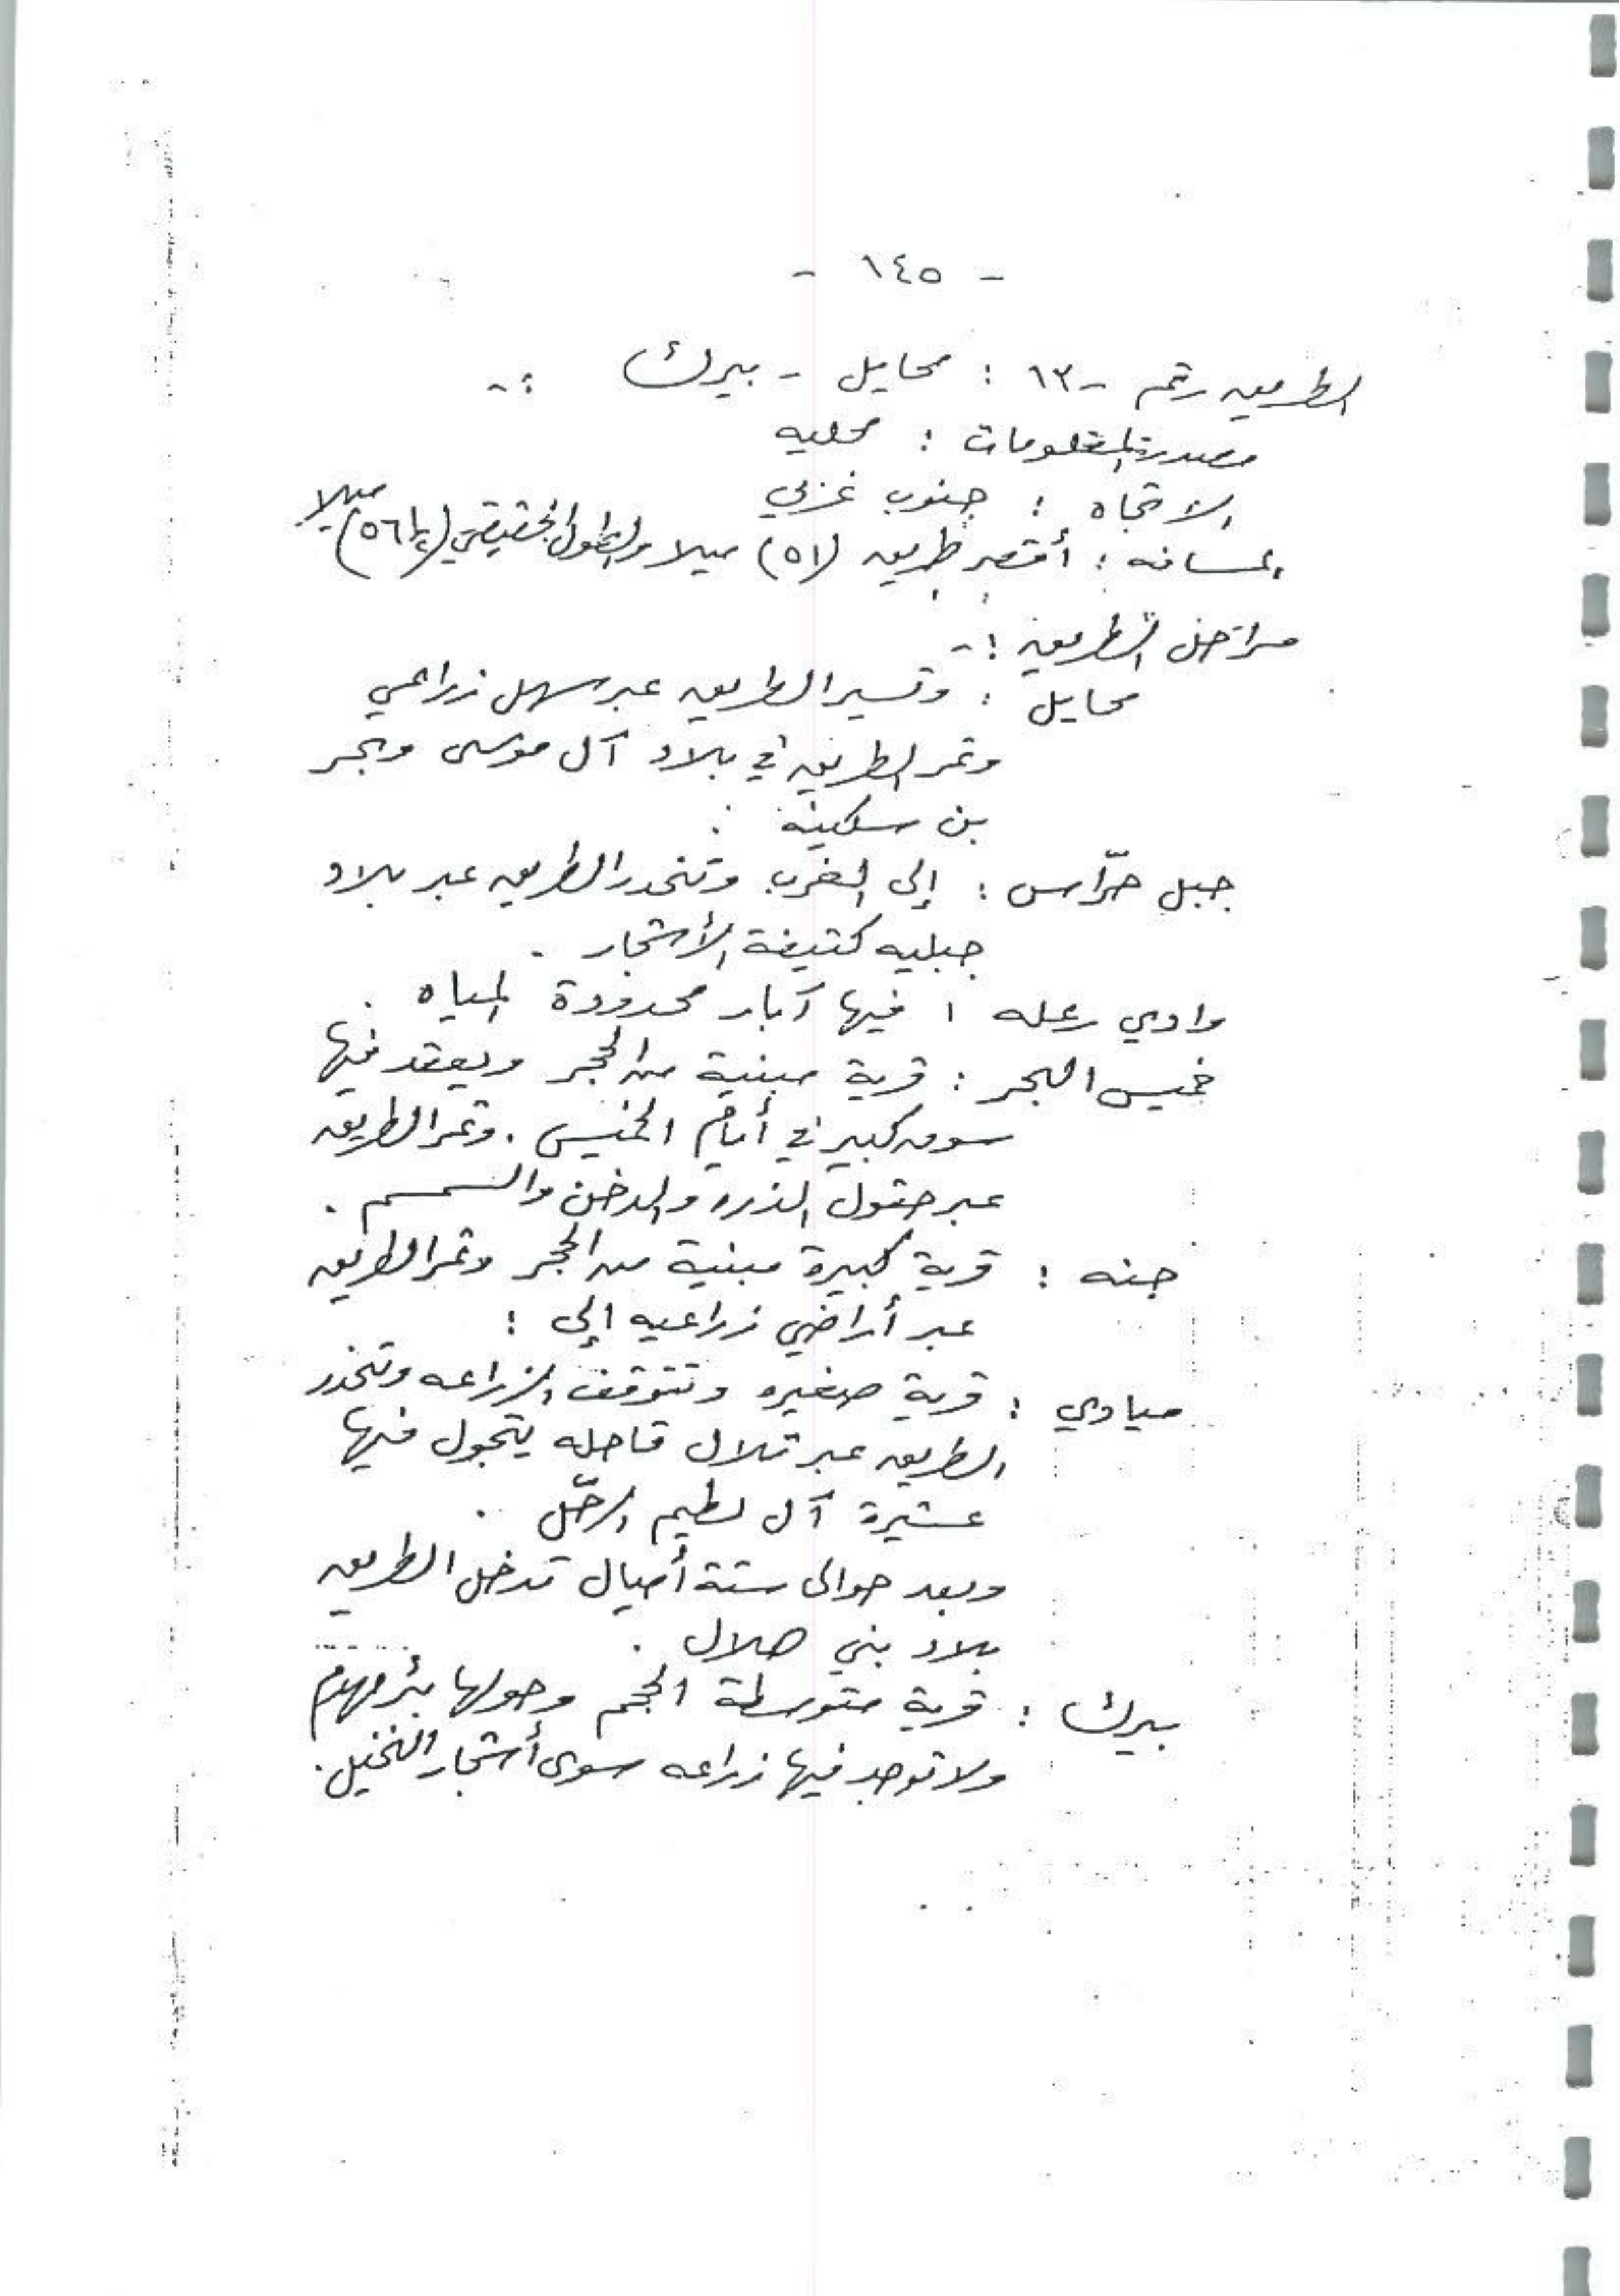 - ١٤٥ -
الطريق رقم -١٣ : محايل - بيرك :-
مصدر المعلومات : محليه
الاتجاه : جنوب غربي
المسافه : أقصر طريق (٥١) ميلا والطول الحقيقي (٥٦¼) ميلا
مراحل الطريق :-
محايل : وتسير الطريق عبر سهل زراعي
وتمر الطريق في بلاد آل موسى وبحر
بن سكينة .
جبل حرّاس : إلى الغرب وتنحدر الطريق عبر بلاد
جبليه كثيفة الأشجار .
وادي رعله : فيها آبار محدودة المياه .
خميس البحر : قرية مبنية من الحجر ويعقد فيها
سوق كبير في أيام الخميس . وتمر الطريق
عبر حقول الذره والدخن والسمسم .
جنه : قرية كبيرة مبنية من الحجر وتمر الطريق
عبر أراضي زراعيه إلى :
ميادي : قرية صغيره وتتوقف الزراعه وتنحدر
الطريق عبر تلال قاحله يتجول فيها
عشيرة آل لطيم الرحّل .
وبعد حوالى ستة أميال تدخل الطريق
بلاد بني هلال .
بيرك : قرية متوسطة الحجم وحولها بئر مهدم
ولا توجد فيها زراعه سوى أشجار النخيل .